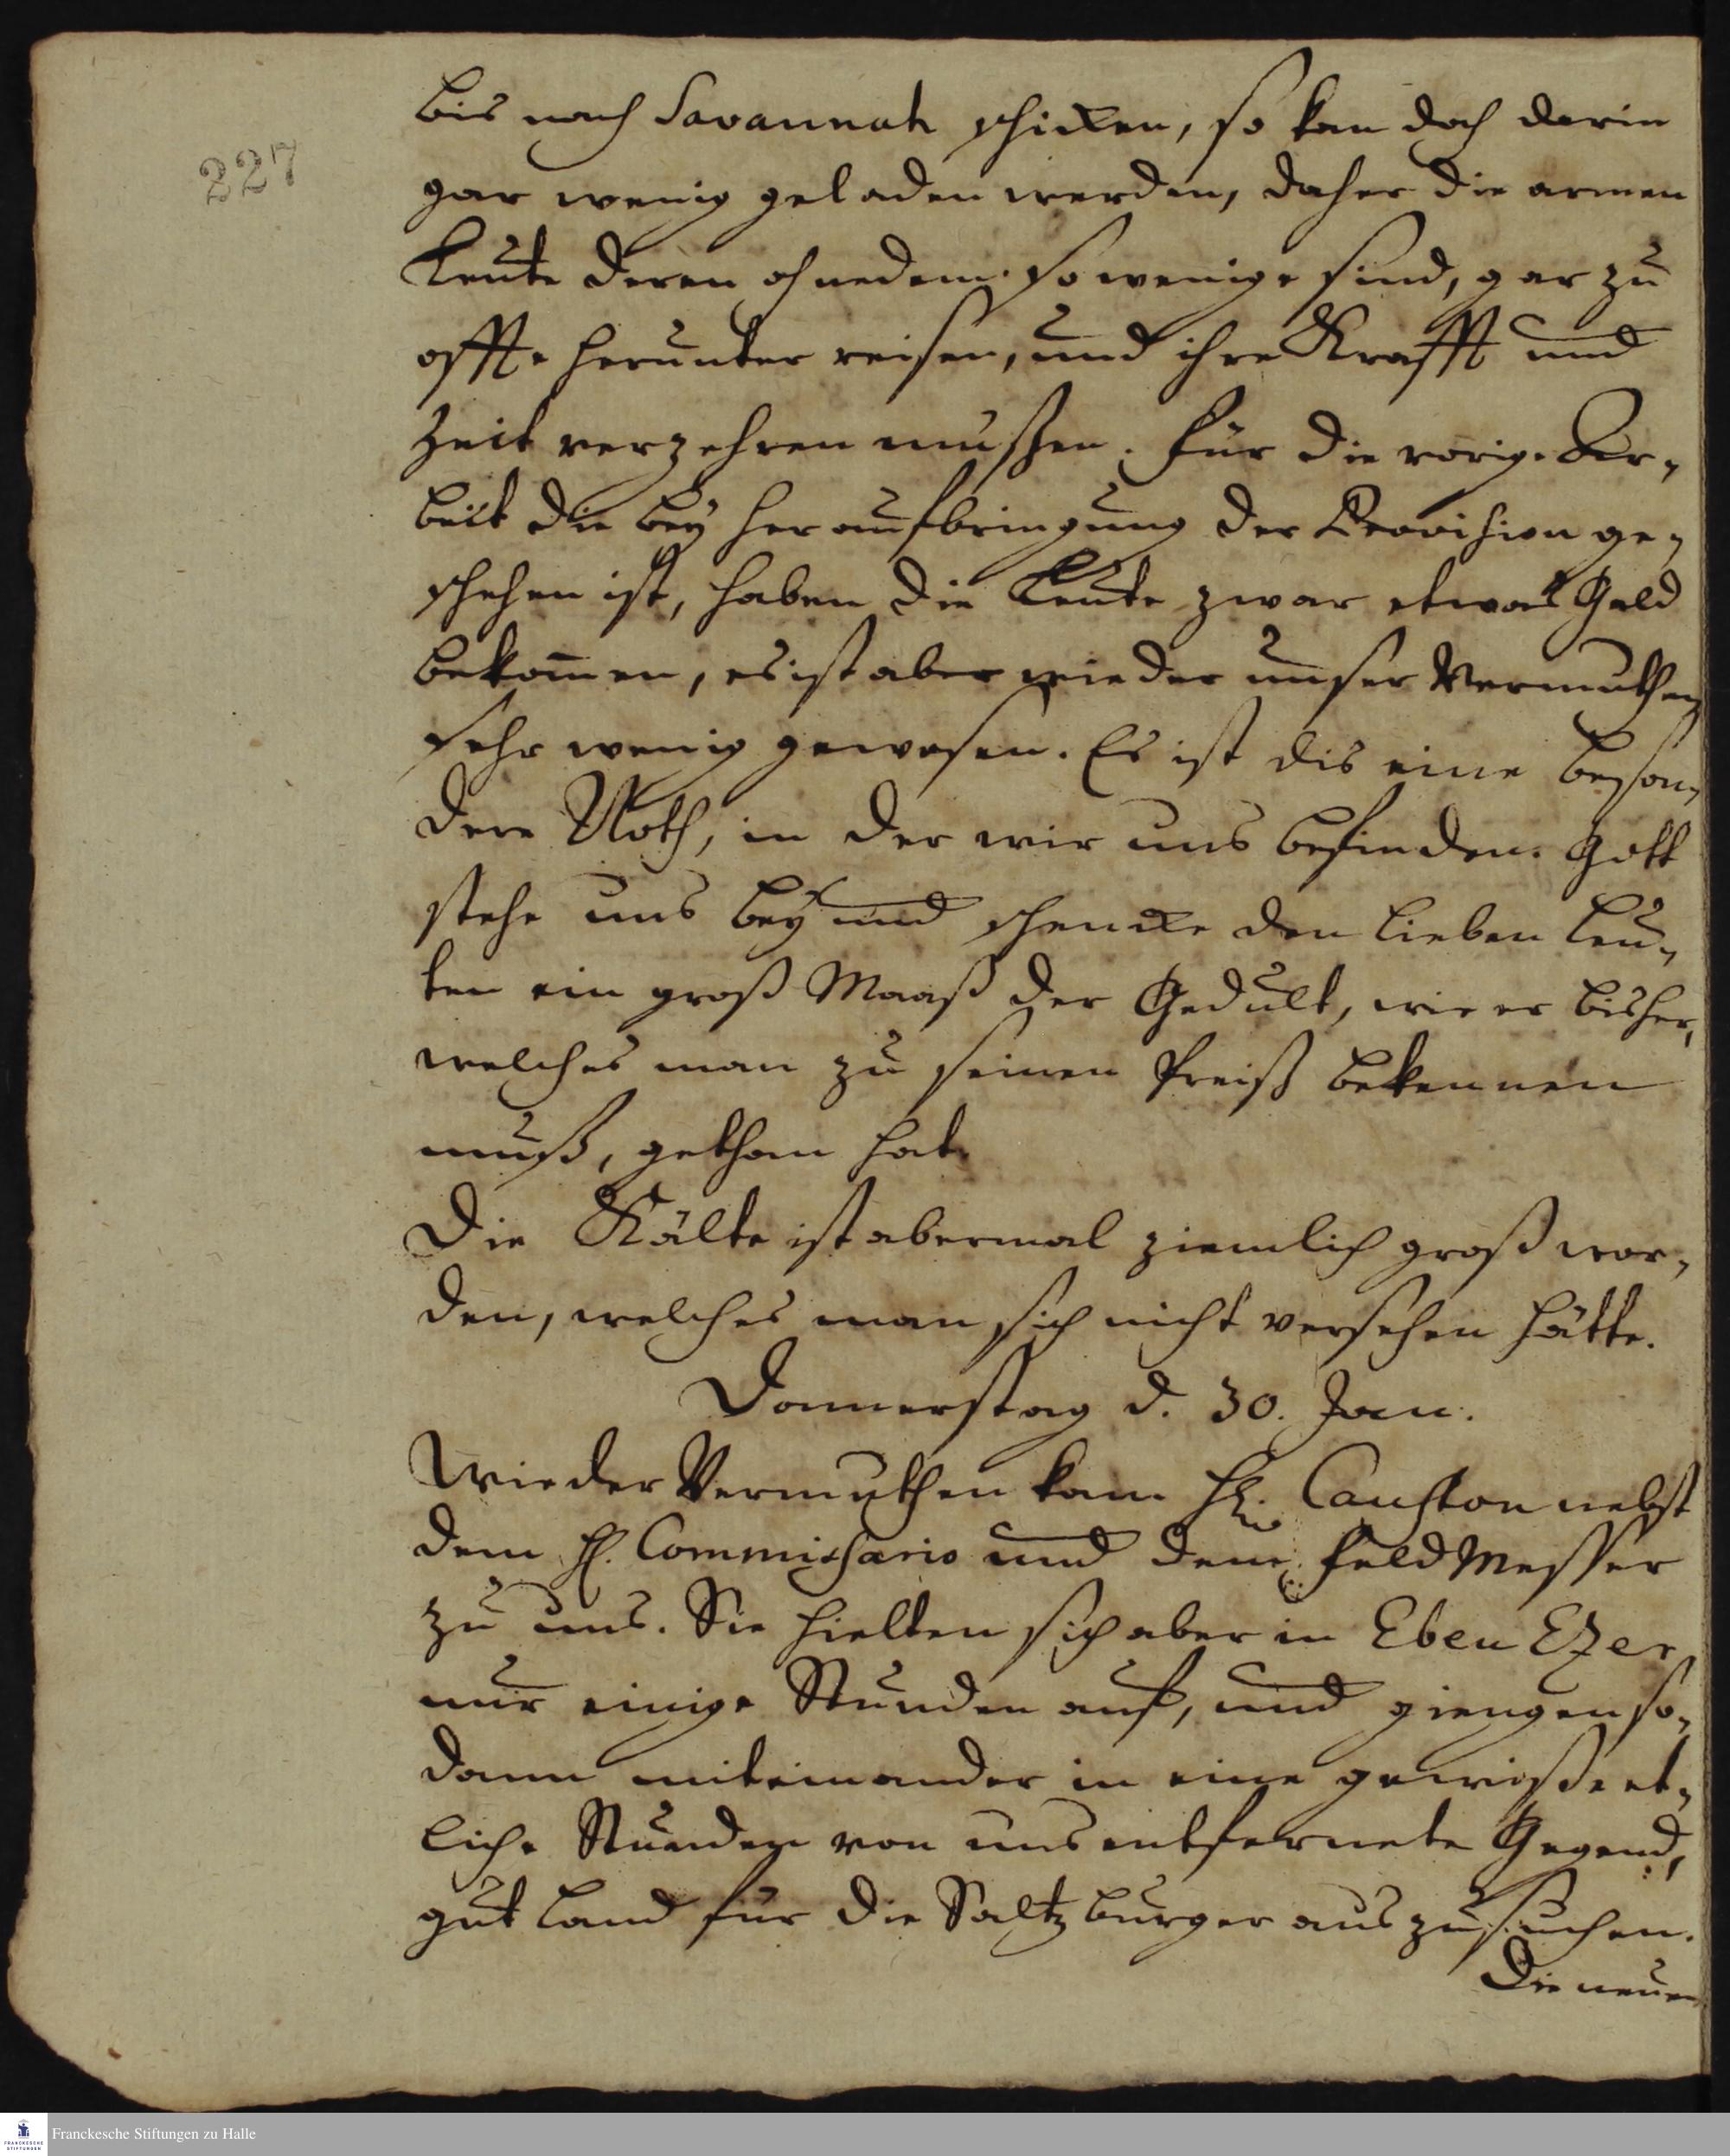 227
bis nach Savannah schicken, so kan doch darin
gar wenig geladen werden, daher die armen
Leute deren ohnedem so wenige sind, gar zu
offte herunter reisen, und ihre Krafft und
Zeit verzehren mußen. Für die vorige Ar-
beit die bey heraufbringung der Provision ge-
schehen ist, haben die Leute zwar etwas Geld
bekom̅en, es ist aber wieder unser Vermuthen
sehr wenig gewesen. Es ist dis eine beson-
dere Noth, in der wir uns befinden. Gott
stehe uns bey und schencke den lieben Leu-
ten ein groß Maaß der Gedult, wie er bisher,
welches man zu seinen Preiß bekennen
muß, gethan hat.
Die Kälte ist abermal ziemlich groß wor-
den, welches man sich nicht versehen hätte.
Donnerstag d. 30. Jan.
Wieder Vermuthen kam H. Causton nebst
dem H. Commissario und dem FeldMesser
zu uns. Sie hielten sich aber in Eben Ezer
nur einige Stunden auf, und giengen so-
dann miteinander in eine gewiße et-
liche Stunden von uns entfernete Gegend,
gut Land für die Saltzburger auszusuchen.
Die neuen
Franckesche Stiftungen zu Halle